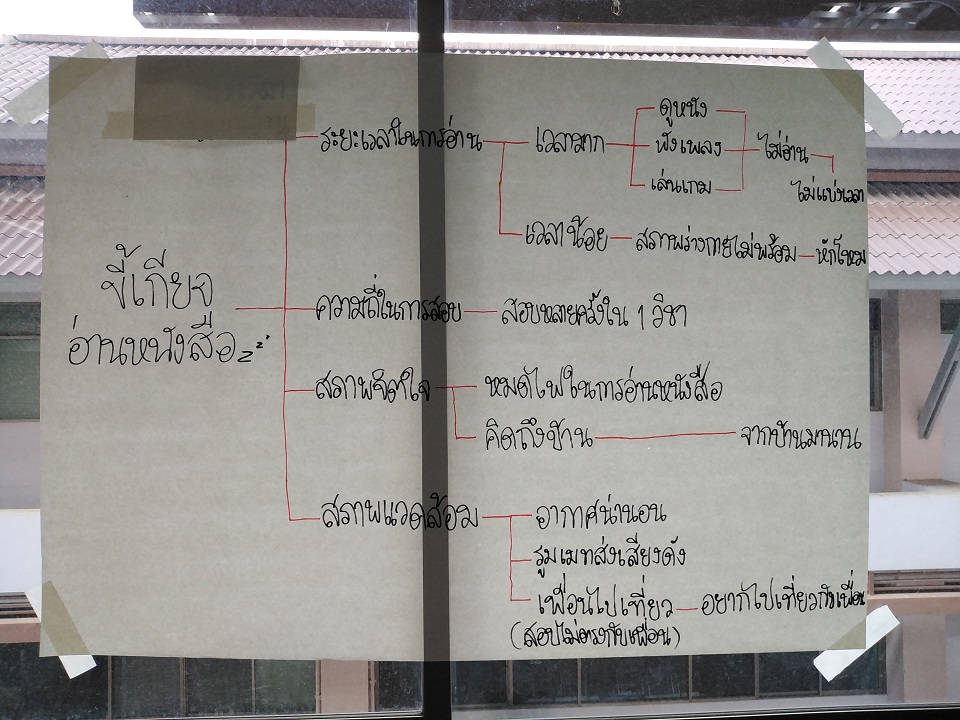 ระยะเวลาในการอ่าน
เวลามาก
ดูหนัง
ฟังเพลง
เล่นเกม
ไม่อ่าน
ไม่แบ่งเวลา
เวลาน้อย
สภาพร่างกายไม่พร้อม
หักโหม
ขี้เกียจ
อ่านหนังสือzzz
ความถี่ในการสอบ
สอบหลายครั้งใน 1 วิชา
สภาพจิตใจ
หมดไฟในการอ่านหนังสือ
คิดถึงบ้าน
จากบ้านมานาน
สภาพแวดล้อม
อากาศน่านอน
รูมเมทส่งเสียงดัง
เพื่อนไปเที่ยว
อยากไปเที่ยวกับเพื่อน
(สอบไม่ตรงกับเพื่อน)